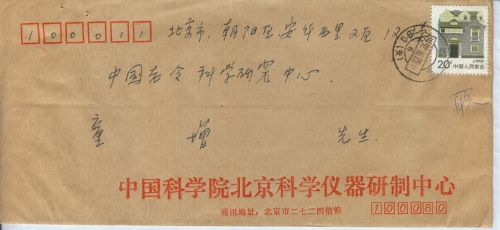 100011 北京市. 朝阳区安华西里
20分 中国人民邮政
中国老令科学研究中心.
童 增 先生.
中国科学院北京科学仪器研制中心
通讯地址：北京市二七二四信箱 100080